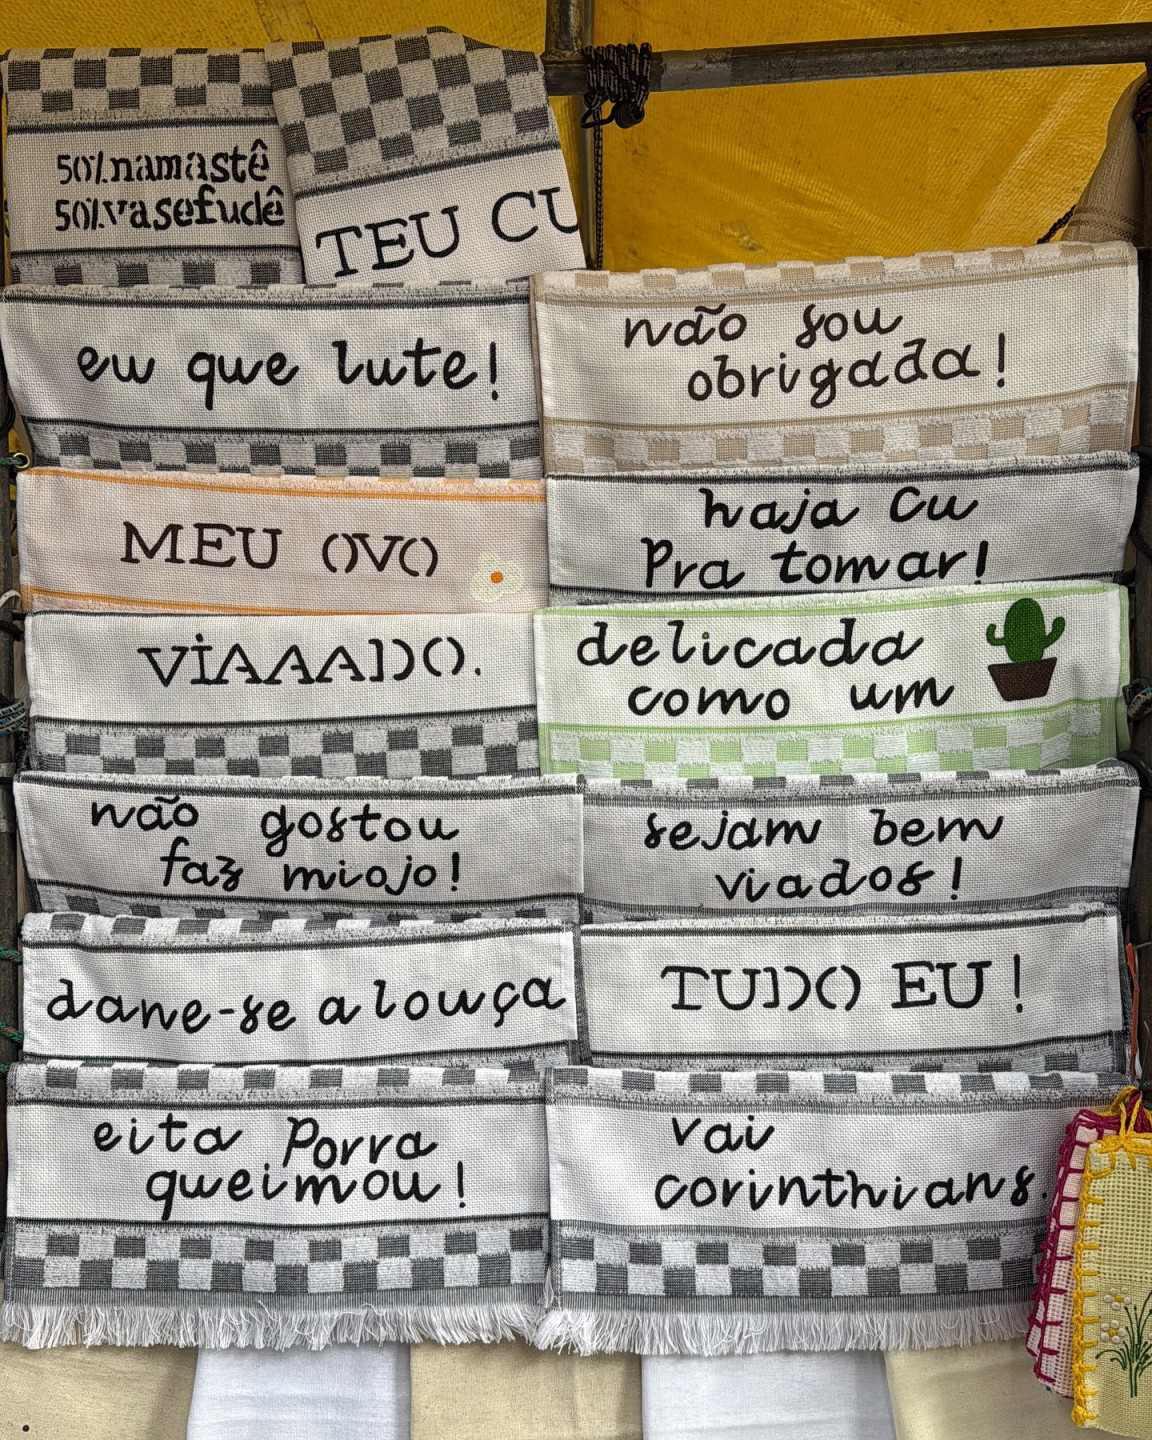 50%namastê
50%vasefudê
TEU CU
eu que lute!
não sou
obrigada!
MEU OVO
haja cu
Pra tomar!
VIAAADO.
delicada
como um
não gostou
faz miojo!
sejam bem
viados!
dane-se a louça
TUDO EU!
eita Porra
queimou!
vai
corinthians.